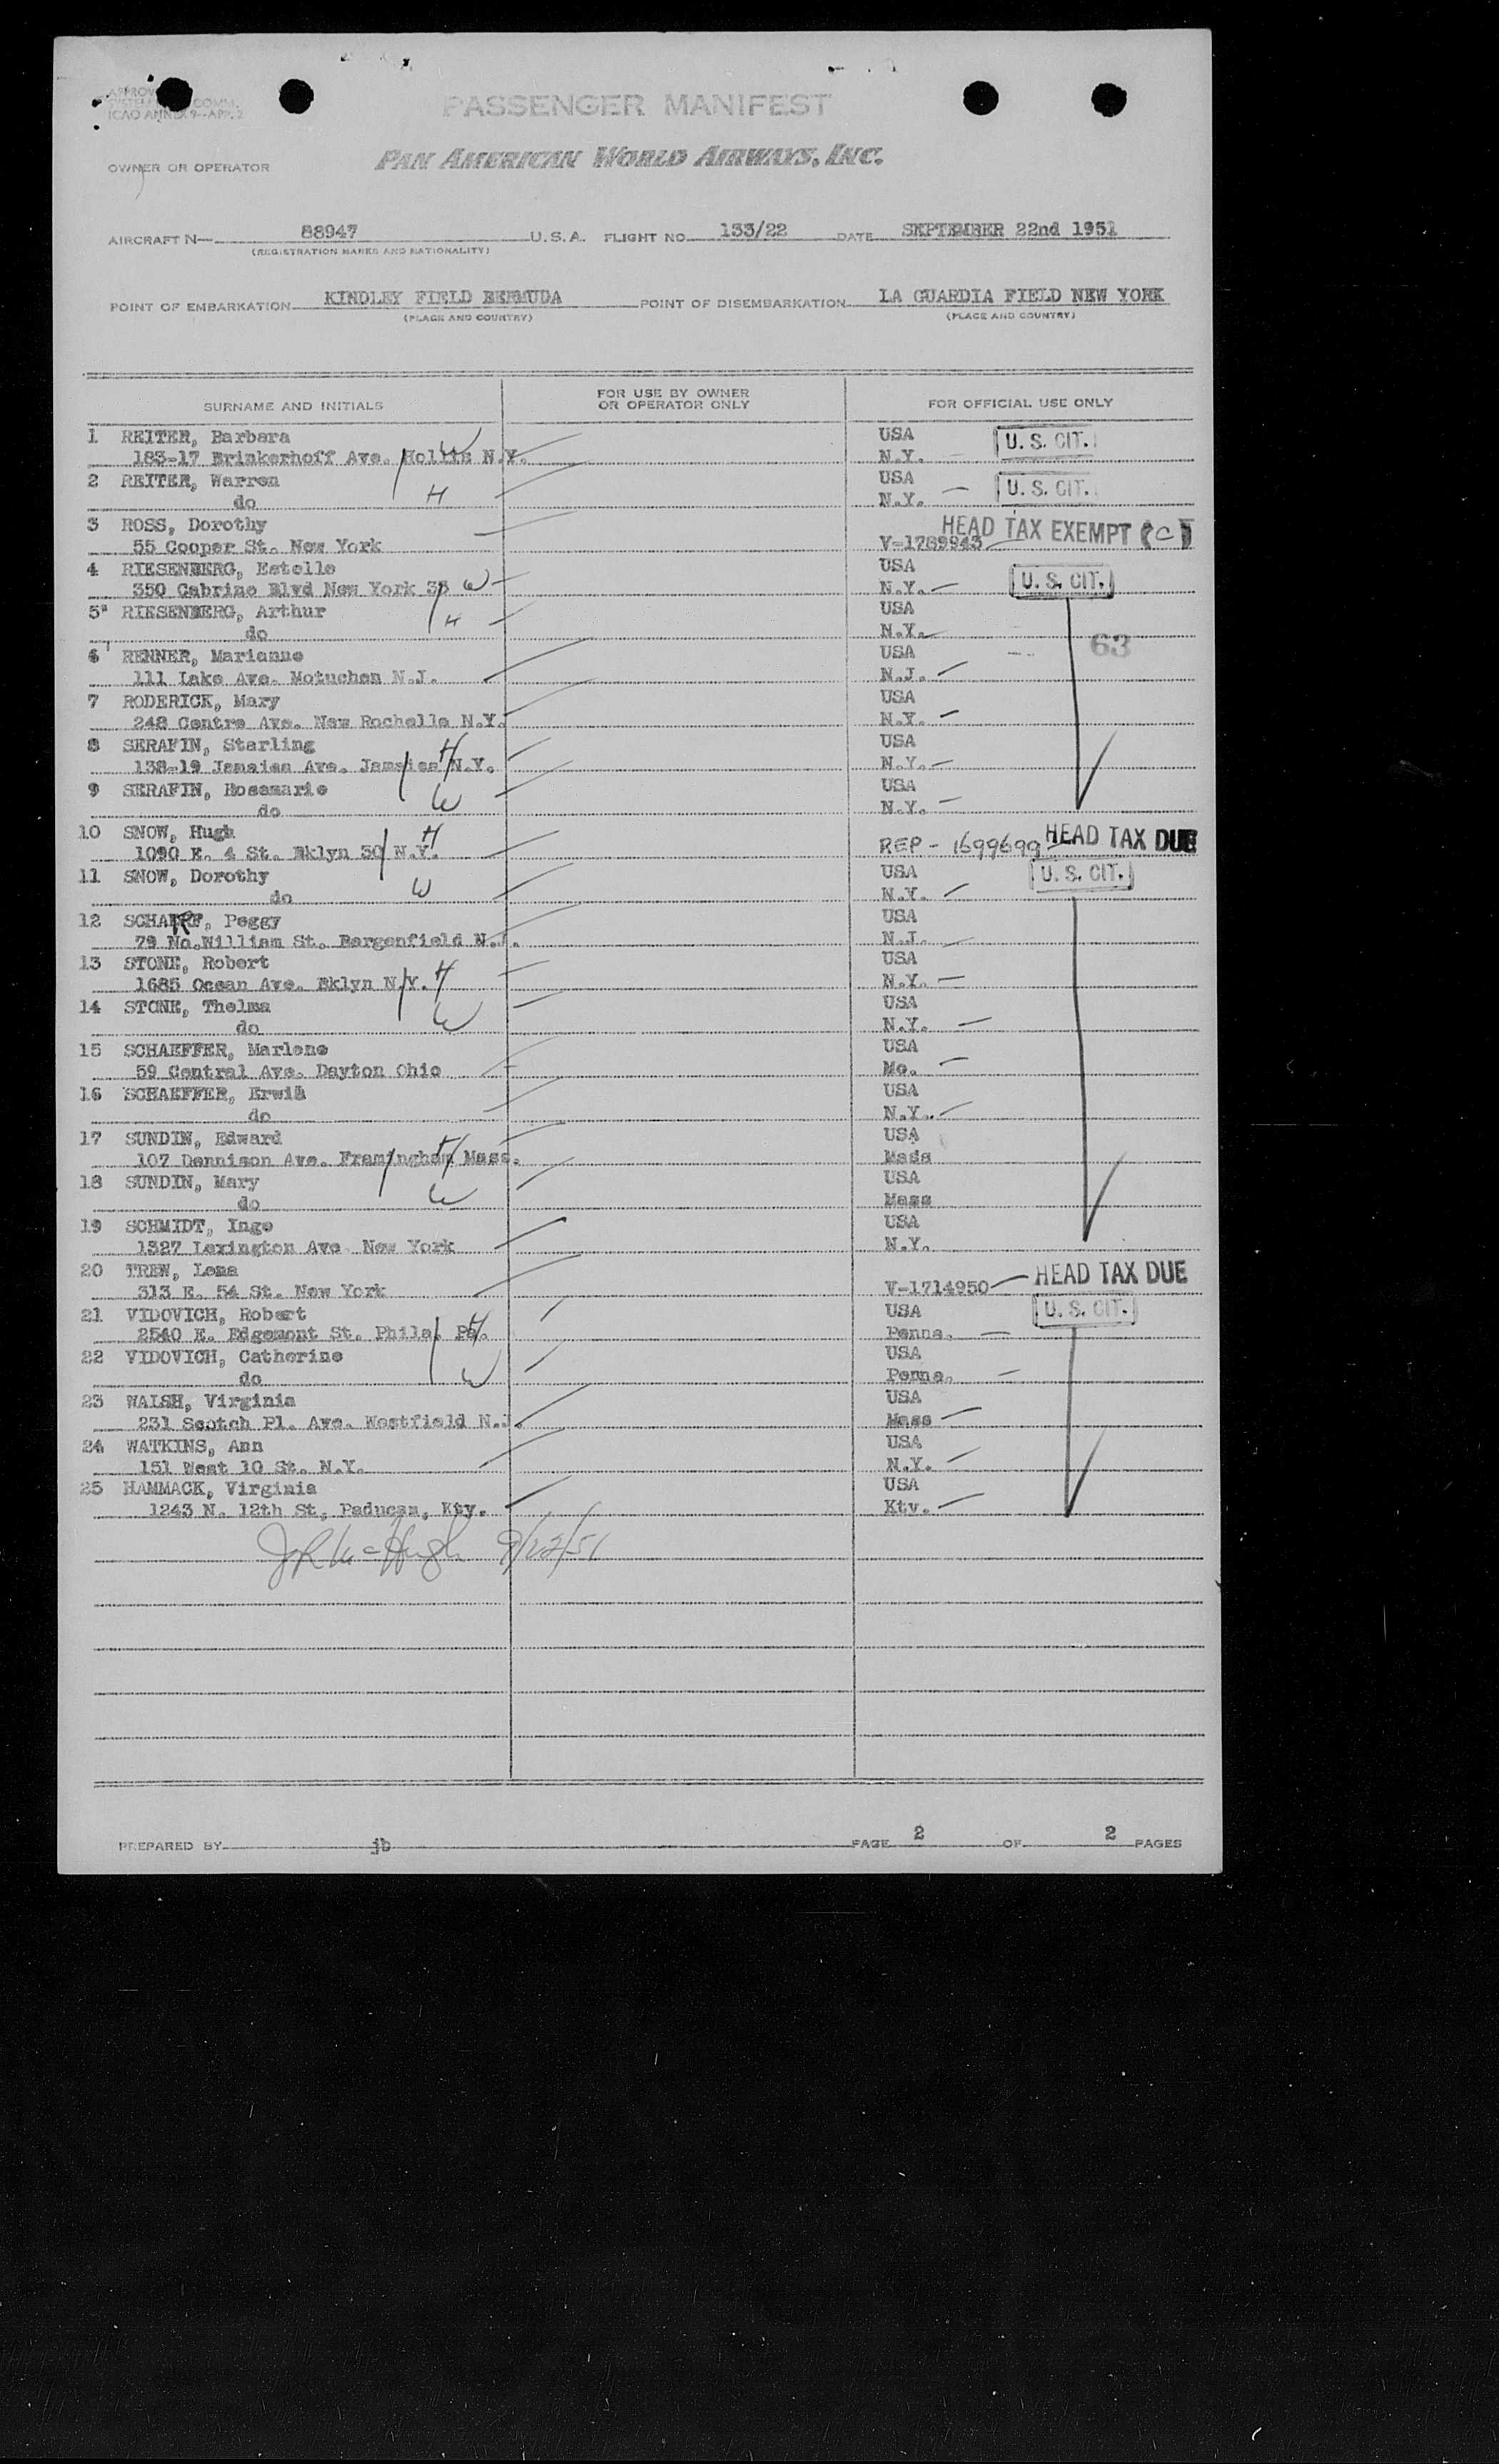 PASSENGER MANIFEST
ICAO ANNEX 9--APP. 2
OWNER OR OPERATOR PAN AMERICAN WORLD AIRWAYS, INC.
AIRCRAFT N— 88947 U.S.A. FLIGHT NO. 133/22 DATE SEPTEMBER 22nd 1951
(REGISTRATION MARKS AND NATIONALITY)
POINT OF EMBARKATION KINDLEY FIELD BERMUDA POINT OF DISEMBARKATION LA GUARDIA FIELD NEW YORK
(PLACE AND COUNTRY) (PLACE AND COUNTRY)
SURNAME AND INITIALS FOR USE BY OWNER OR OPERATOR ONLY FOR OFFICIAL USE ONLY
1 REITER, Barbara W USA U. S. CIT.
183-17 Brinkerhoff Ave. Hollis N.Y. N.Y.
2 REITER, Warren H USA U. S. CIT.
do N.Y.
3 ROSS, Dorothy HEAD TAX EXEMPT (C)
55 Cooper St. New York V-1789943
4 RIESENBERG, Estelle USA U. S. CIT.
350 Cabrino Blvd New York 33 W N.Y.
5 RIESENBERG, Arthur H USA
do N.Y.
6 RENNER, Marianne USA 63
111 Lake Ave. Metuchen N.J. N.J.
7 RODERICK, Mary USA
248 Centre Ave. New Rochelle N.Y. N.Y.
8 SERAFIN, Starling H USA
138-19 Jamaica Ave. Jamaica N.Y. N.Y.
9 SERAFIN, Rosemarie W USA
do N.Y.
10 SNOW, Hugh H HEAD TAX DUE
1090 E. 4 St. Bklyn 30 N.Y. REP - 1699699
11 SNOW, Dorothy W USA U. S. CIT.
do N.Y.
12 Peggy USA
79 No.William St. Bergenfield N.J. N.J.
13 STONE, Robert H USA
1685 Ocean Ave. Bklyn N.Y. N.Y.
14 STONE, Thelma W USA
do N.Y.
15 SCHAEFFER, Marlene USA
59 Central Ave. Dayton Ohio Mo.
16 SCHAEFFER, Erwin USA
do N.Y.
17 SUNDIN, Edward H USA
107 Dennison Ave. Framingham Mass. Mads
18 SUNDIN, Mary W USA
do Mass
19 SCHMIDT, Inge USA
1327 Lexington Ave New York N.Y.
20 TREW, Lena HEAD TAX DUE
313 E. 54 St. New York V-1714950
21 VIDOVICH, Robert H USA U. S. CIT.
2540 E. Edgemont St. Phila. Pa. Penna.
22 VIDOVICH, Catherine W USA
do Penna.
23 WALSH, Virginia USA
231 Scotch Pl. Ave. Westfield N.J. Mass
24 WATKINS, Ann USA
151 West 10 St. N.Y. N.Y.
25 HAMMACK, Virginia USA
1243 N. 12th St, Paducam, Kty. Kty.
9/22/51
PREPARED BY jb PAGE 2 OF 2 PAGES